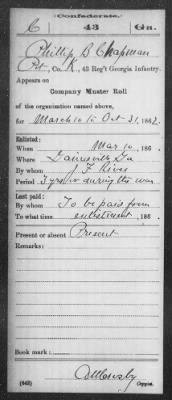 Confederate.
C 43 Ga.
Phillip B Chapman
Pvt, Co. K, 43 Reg't Georgia Infantry.
Appears on
Company Muster Roll
of the organization named above,
for March 10 to Oct 31, 1862.
Enlisted:
When Mar 10, 186 .
Where Gainesville Ga
By whom J F Rives
Period 3 yrs or during the war
Last paid:
By whom To be paid from
To what time enlistment, 186 .
Present or absent Present
Remarks:
Book mark:
(642)
Copyist.